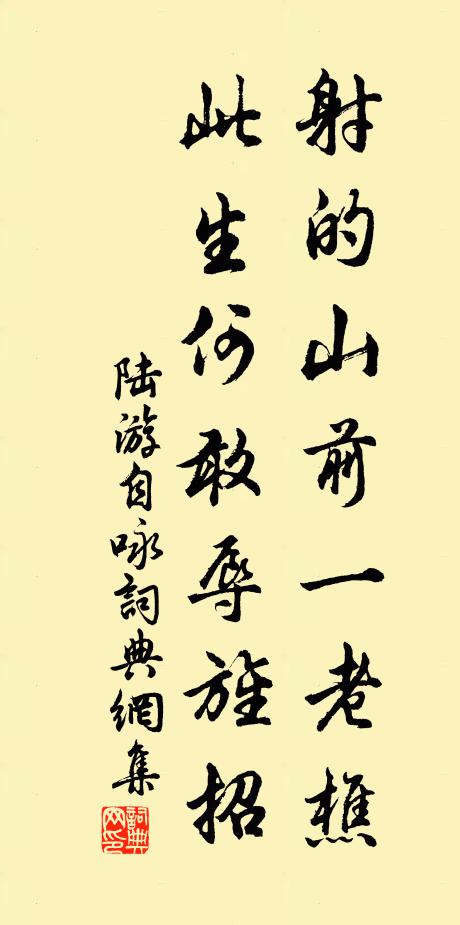 射的山前一老樵
此生何敢辱旌招
陆游自咏詞典網集
詞典
网印